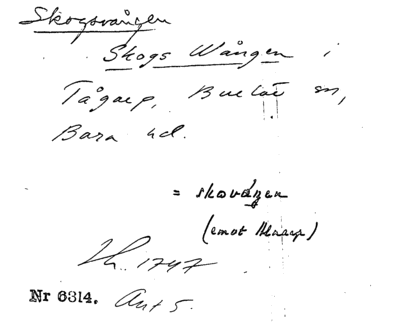 Skogsvången
Skogs Wången i
Tågarp, Burlöv sn,
Bara hd.
= skovången
(emot
1747
Nr 6314. Ant 5.